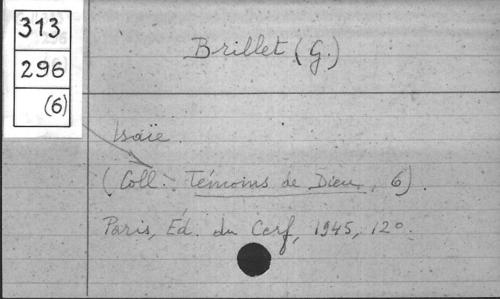 313
296
(6)
Brillet (G.)
Isaïe.
(Coll. : Témoins de Dieu, 6).
Paris, Éd. du Cerf, 1945, 12º.